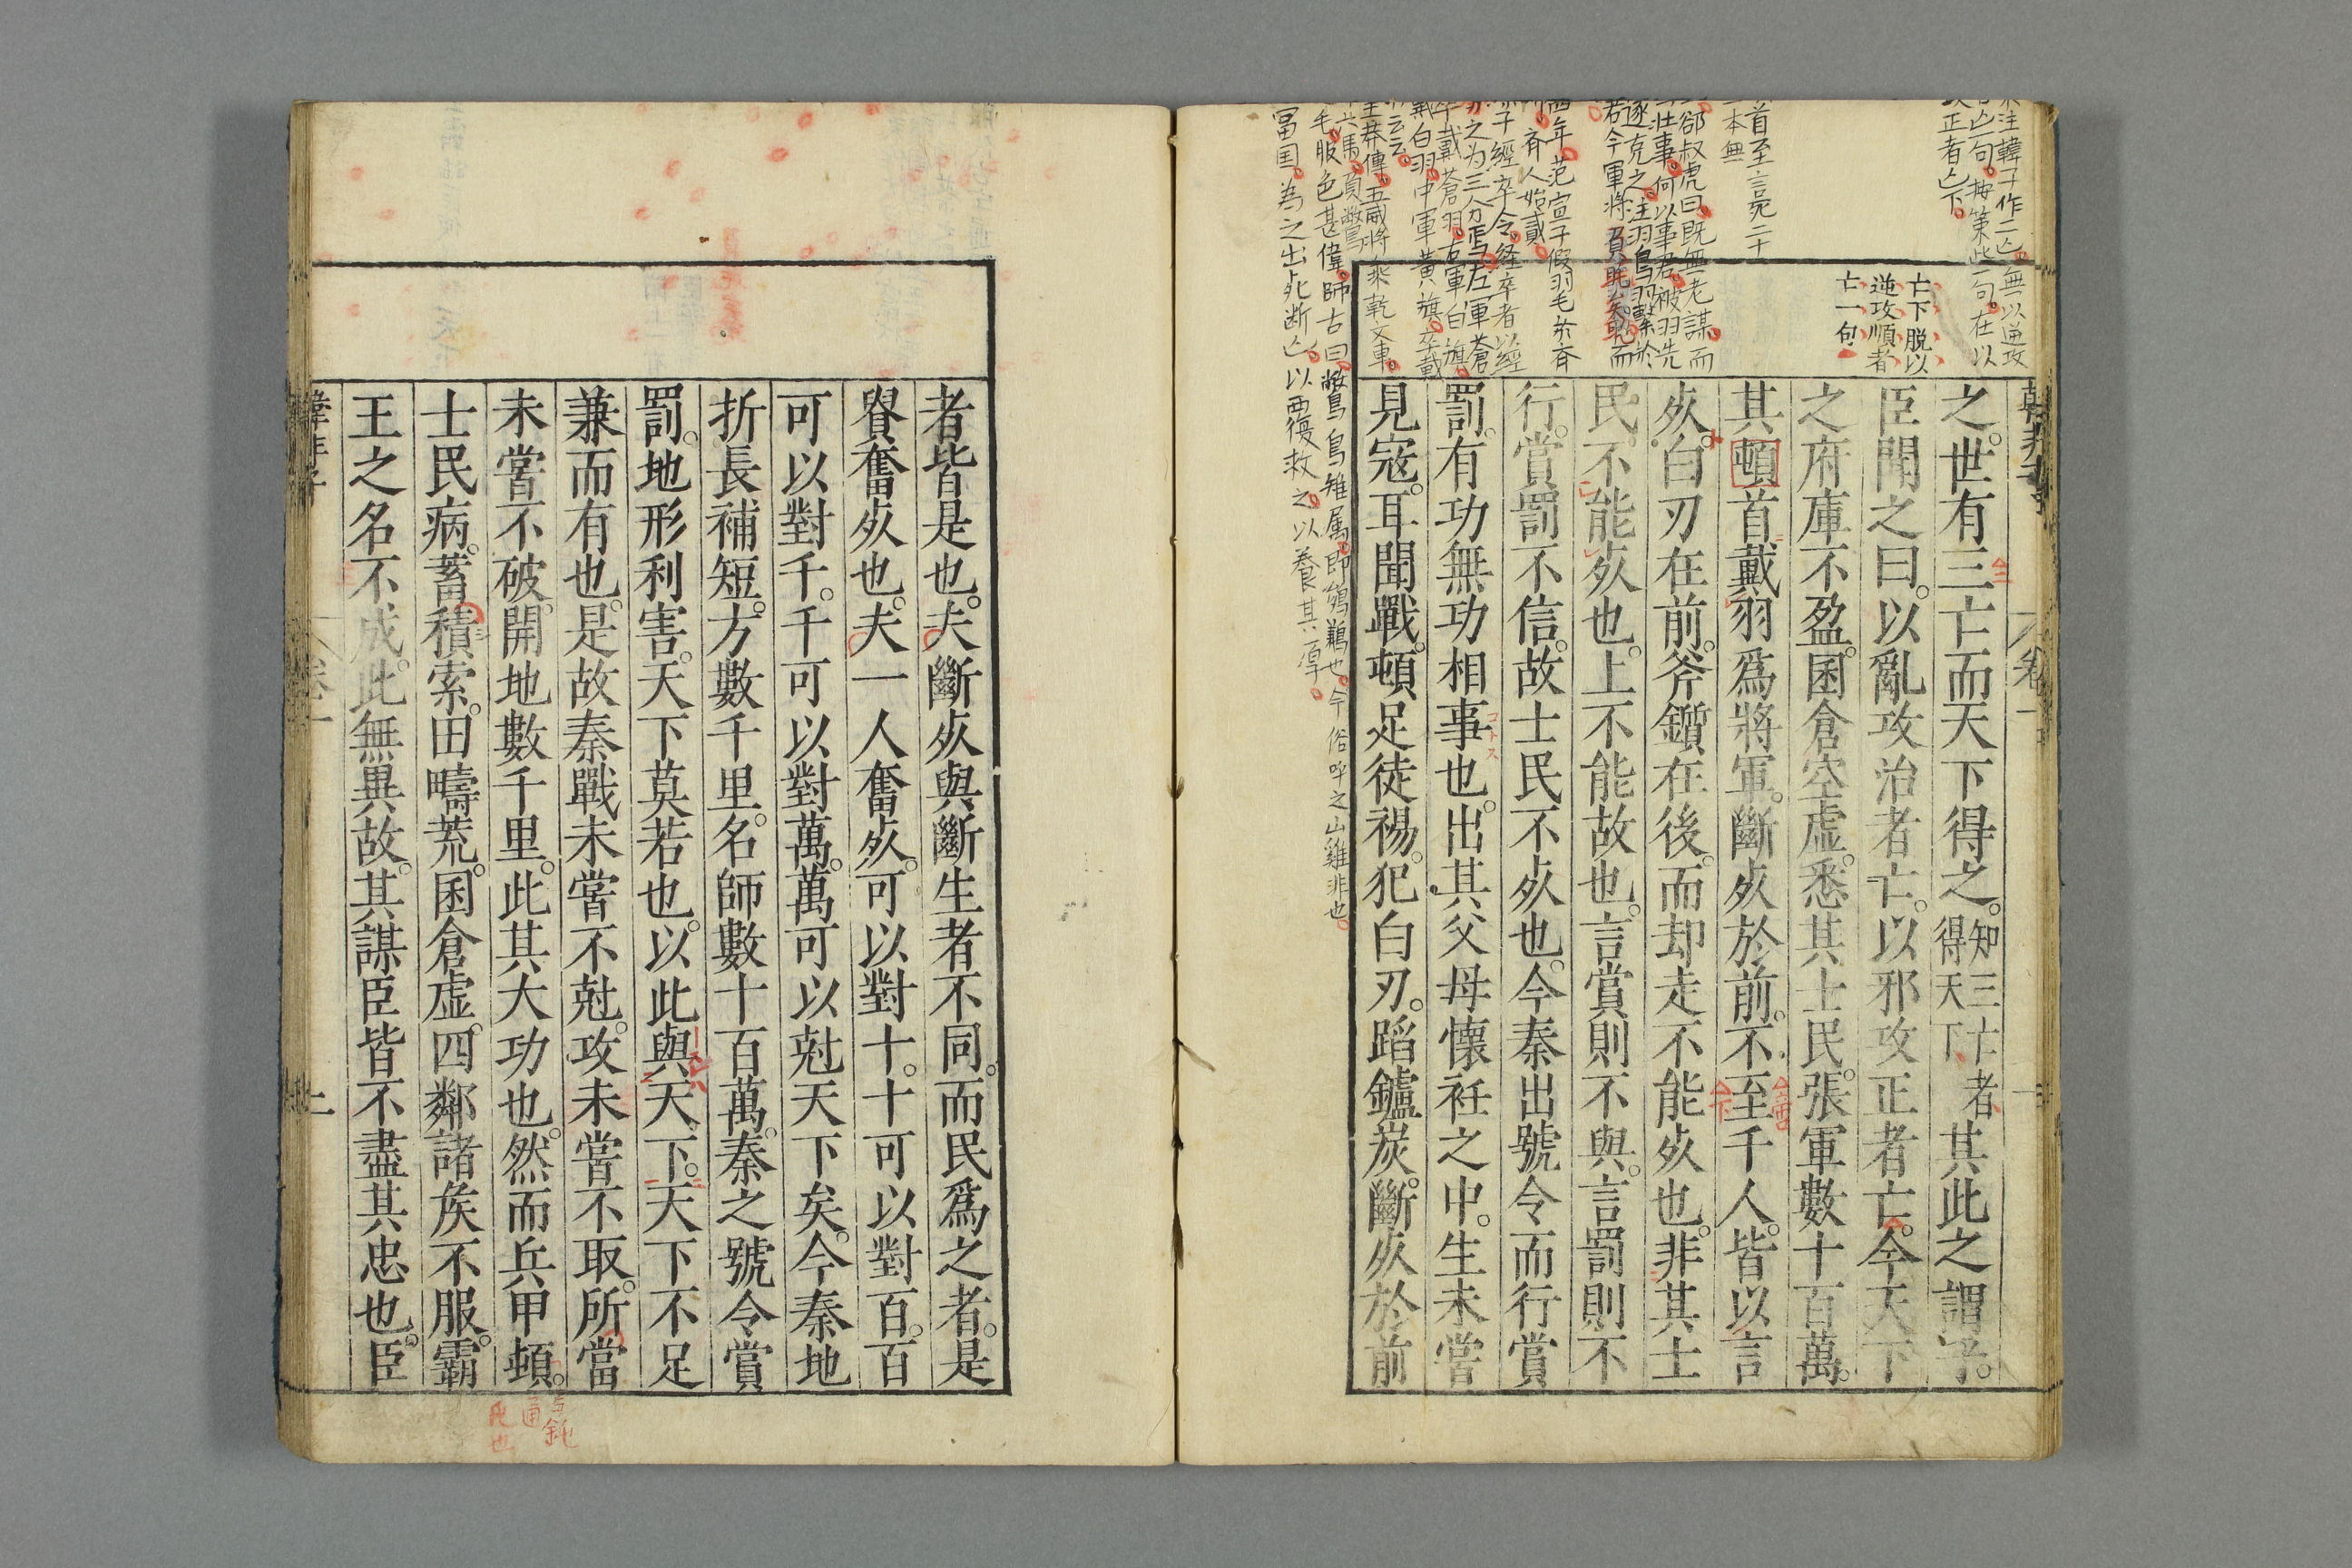 韓非子
卷一
之。世有三亡而天下得之。知三亡者得天下其此之謂乎。
臣聞之曰。以亂攻治者亡。以邪攻正者亡。今天下
之府庫不盈。囷倉空虛。悉其士民。張軍數十百萬。
其頓首戴羽爲將軍。斷死於前。不至千人。皆以言
死。白刃在前。斧鑕在後。而却走不能死也。非其士
民不能死也。上不能故也。言賞則不與。言罰則不
行。賞罰不信。故士民不死也。今秦出號令而行賞
罰。有功無功相事也。出其父母懷衽之中。生未嘗
見寇。耳聞戰。頓足徒裼。犯白刃。蹈鑪炭。斷死於前
亡下脱以
逆攻順者
亡一句
注韓子作二亡。無以逆攻
亡一句。按第此一句。在以
攻正者亡下。
首至言死二十
本無
郤叔虎曰。既無老謀。而
壯事。何以事君。被羽先
遂克之。注羽鳥羽繫於
若今軍將負眊矣
四年。范宣子假羽毛於齊
齊人始貳。
子經卒令。經卒者以經
之为三分焉。左軍蒼
卒戴蒼羽。右軍白旗。
戴白羽。中軍黃旗。卒戴
云云。
莽傳。五威將乘乾文車。
六馬。負鷩鳥
毛。服色甚偉。師古曰。鷩鳥雉属。即鵕鸃也。今俗呼之山雞非也。
冨国。為之出死断亡。以覆救之。以養其厚。
者皆是也。夫斷死與斷生者不同。而民爲之者。是
貴奮死也。夫一人奮死。可以對十。十可以對百。百
可以對千。千可以對萬。萬可以尅天下矣。今秦地
折長補短。方數千里。名師數十百萬。秦之號令賞
罰。地形利害。天下莫若也。以此與天下。天下不足
兼而有也。是故秦戰未嘗不尅。攻未嘗不取。所當
未嘗不破。開地數千里。此其大功也。然而兵甲頓。
士民病。蓄積索。田疇荒。囷倉虛。四鄰諸矦不服。霸
王之名不成。此無異故。其謀臣皆不盡其忠也。臣
与鈍
通
韓非子
卷一
二